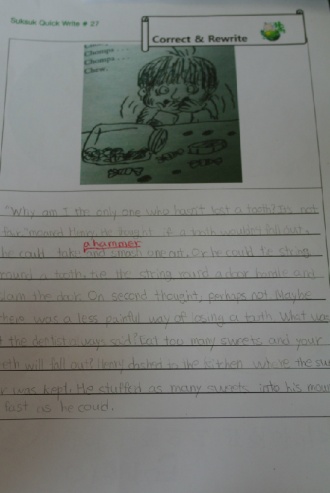 Suksuk Quick Write # 27
Correct & Rewrite
Chomps . . . .
Chomps . . . .
Chew.
"Why am I the only one who hasn't lost a tooth? It's not
fair," thought If a tooth wouldn't fall out,
he could take and smash one out. Or he could tie string
a hammer
round a tooth, tie the string round a door handle and
slam the door. On second thought, perhaps not. Maybe
there was a less painful way of losing a tooth. What was
it the dentist always said? "Eat too many sweets and your
teeth will fall out!" Henry dashed to the kitchen where the sweet
jar was kept. He stuffed as many sweets into his mouth
fast as he coud.